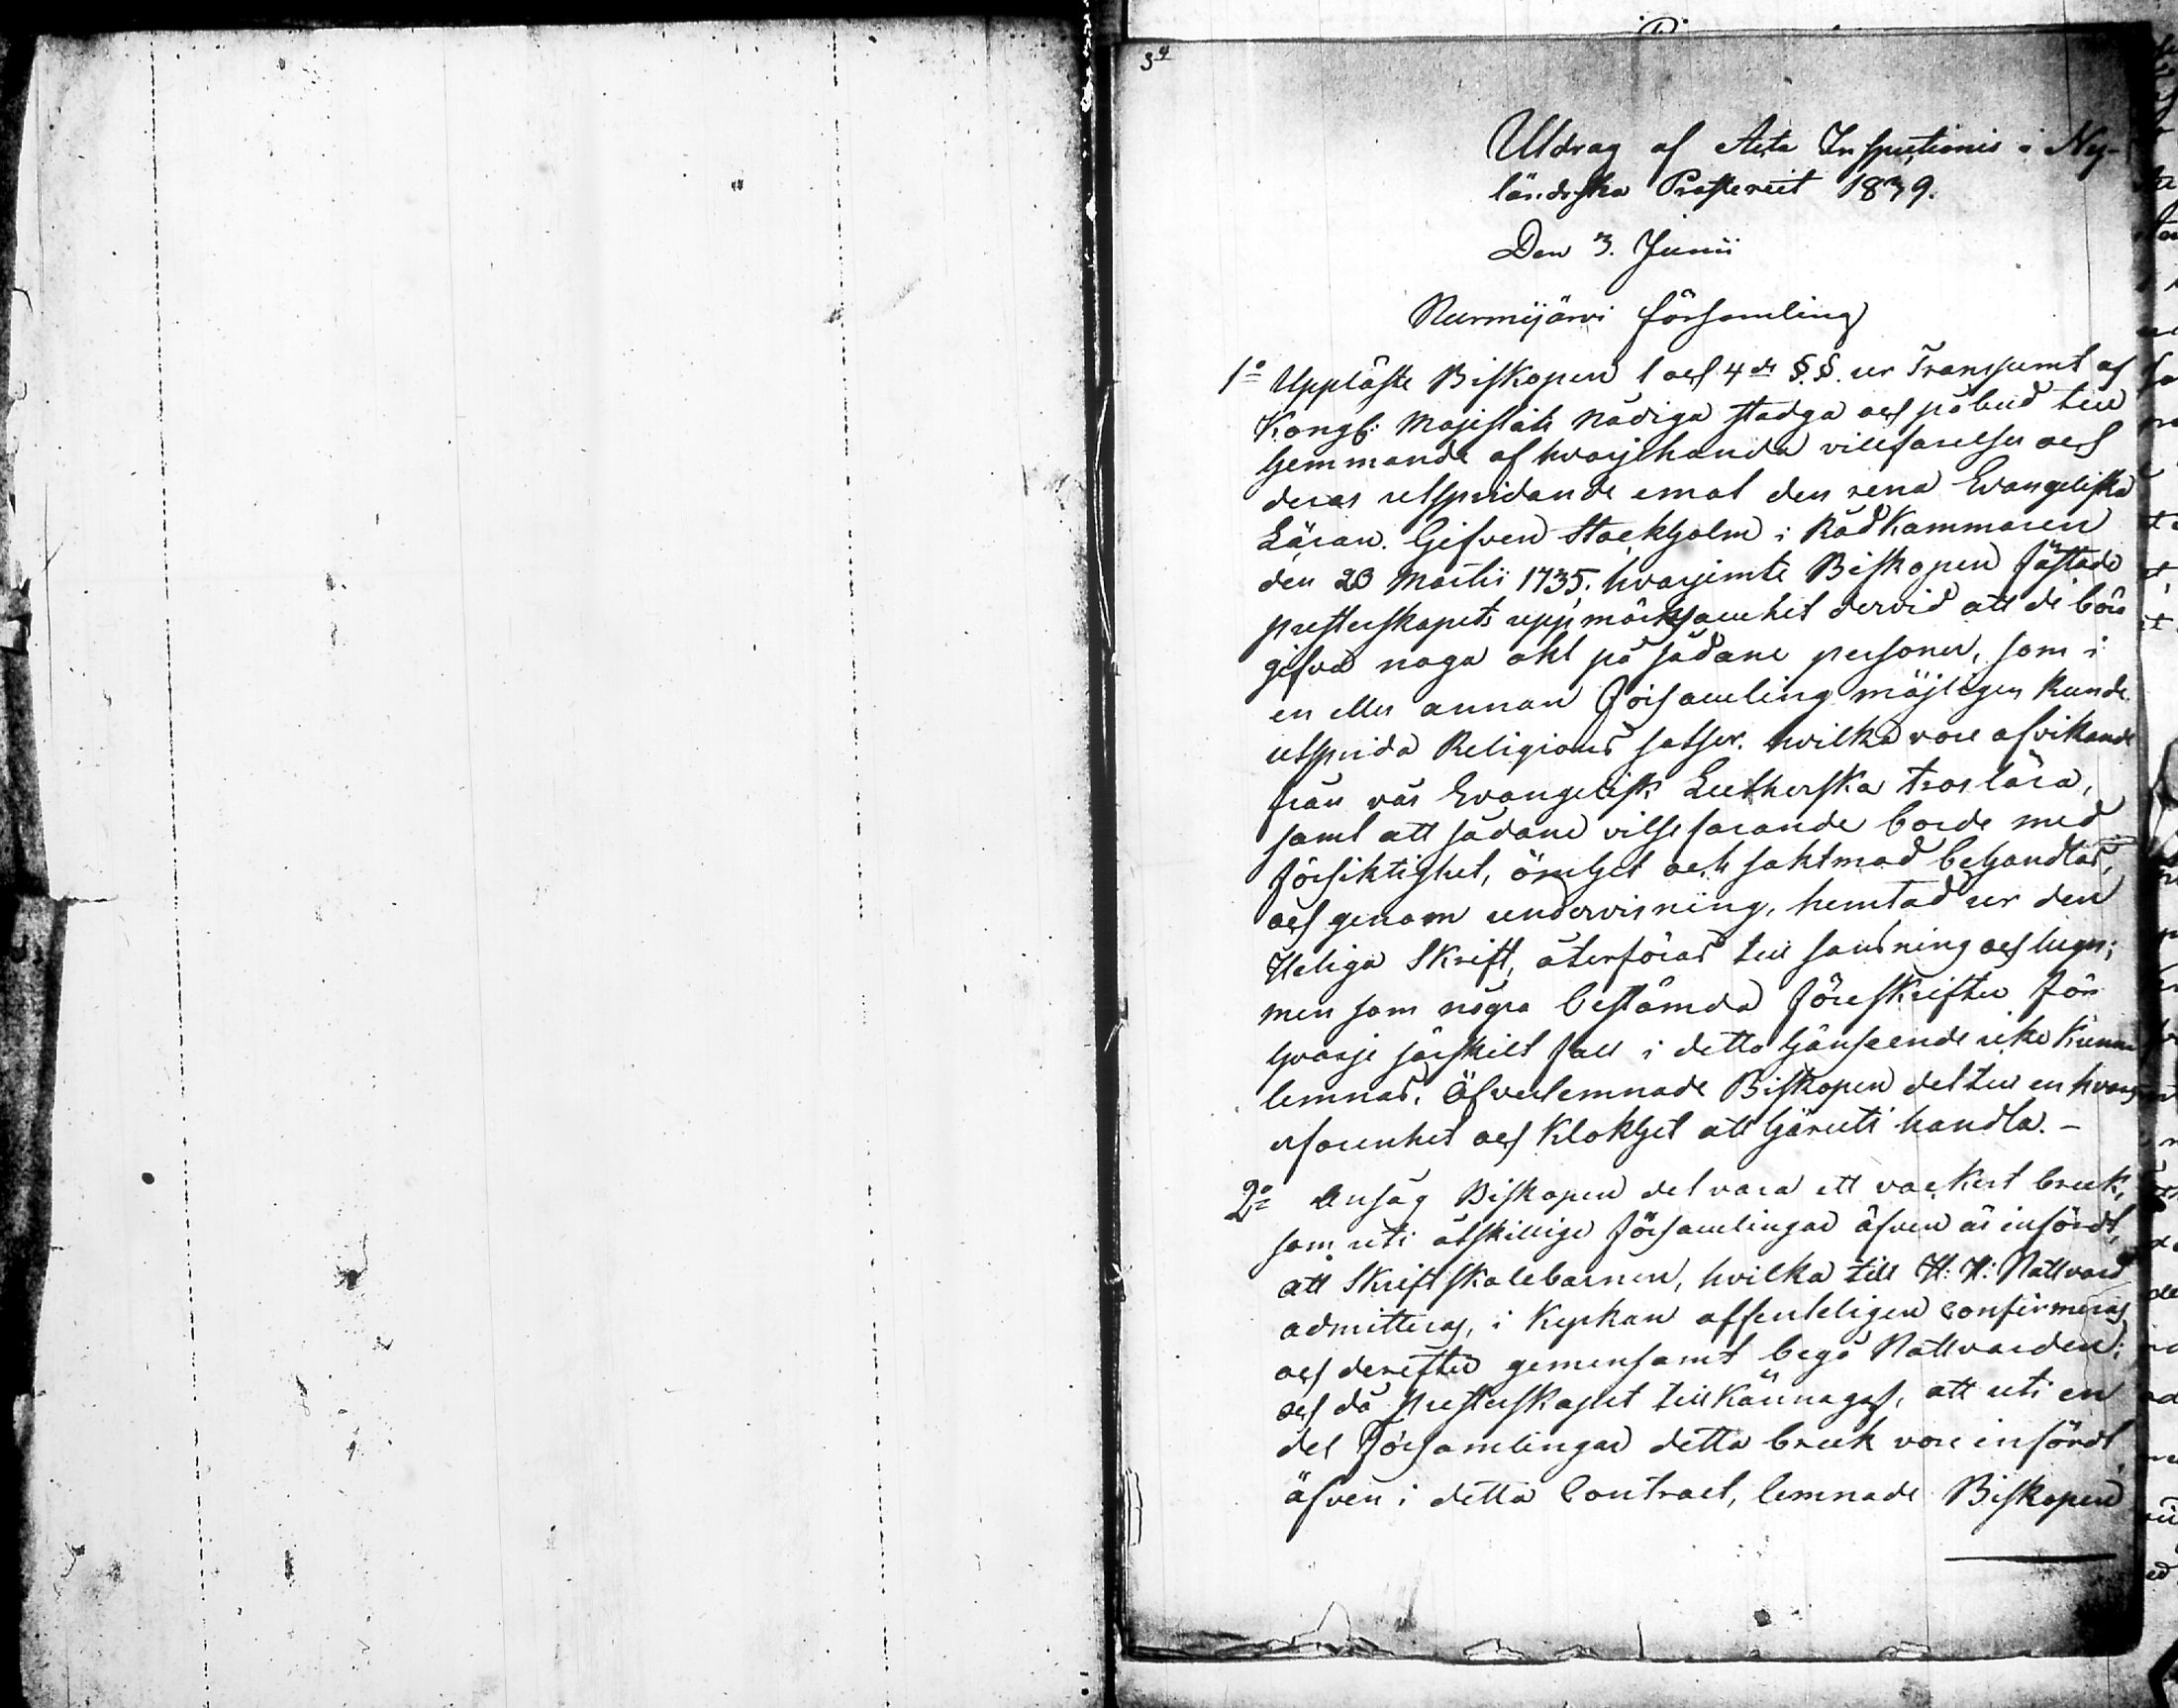 Utdrag af Acta Inspectionis i Ny-
ländska Prosteriet 1839.
Den 3. Junii
Nurmijärvi församling
1o Uppläste Biskopen 1 och 4de §.§. ur Transsumt af
Kongl: Majestäts Nådiga stadga och påbud till
hemmande af hvarjehanda villfarelser och
deras utspridande emot den rena Evangeliska
Läran. Gifven Stockholm i RådKammaren
den 20 Martii 1735. hvarjemte Biskopen fästade
presterskapets uppmärksamhet dervid att de böra
gifva noga akt på sådane personer, som i
en eller annan församling möjligen kunde
utsprida Religions satser. hvilka vore afvikande
från vår Evangelisk Lutherska troslära,
samt att sådane vilsefarande borde med
försiktighet, ömhet och saktmod behandlas,
och genom undervisning, hemtad ur den
Heliga Skrift, återföras till sansning och lugn;
men som några bestämda föreskrifter för
hvarje särskilt fall i detta hänseende icke kunna
lemnas, Öfverlemnade Biskopen det till en hvars
erfarenhet och Klokhet att häruti handla. -
2o Ansåg Biskopen det vara ett vackert bruk,
som uti åtskillige församlingar äfven är infördt,
att Skriftskolebarnen, hvilka till H: H: Nattvard
admitteras, i Kyrkan offentligen confirmeras
och derefter gemensamt begå Nattvarden;
och då presterskapet tillkännagaf, att uti en
del församlingar detta bruk vore infördt
äfven i detta Contract, lemnade Biskopen